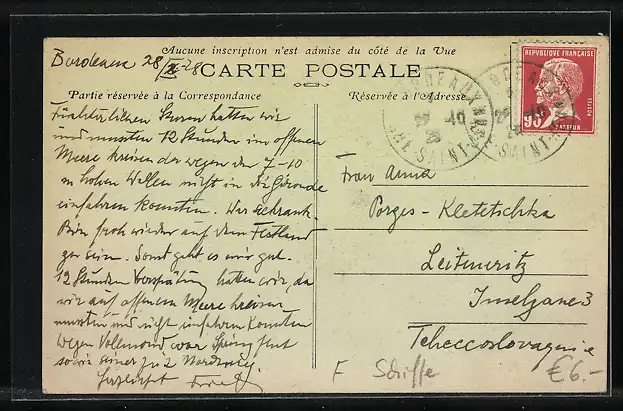 Aucune inscription n'est admise du côté de la Vue
Bordeaux 28/X 28
CARTE POSTALE
Partie réservée à la Correspondance
Réservée à l'Adresse
REPUBLIQUE FRANÇAISE
90
POSTES
PASTEUR
BORDEAUX
Fürchterlichen Sturm hatten wir
und mussten 12 Stunden im offenen
Meere kreisen da wegen der 7-10
m hohen Wellen nicht in die Gironde
einfahren konnten. War seekrank.
Bin froh wieder auf dem Festland
zu sein. Sonst geht es mir gut.
12 Stunden Verspätung hatten wir, da
wir auf offenem Meere kreisen
mussten und nicht einfahren konnten
wegen Vollmond war
Herzlichst
Frau Anna
Porges-Kletetschka
Leitmeritz
Inselgasse 3
Tcheccoslovaquie
F Schiffe
€6.-